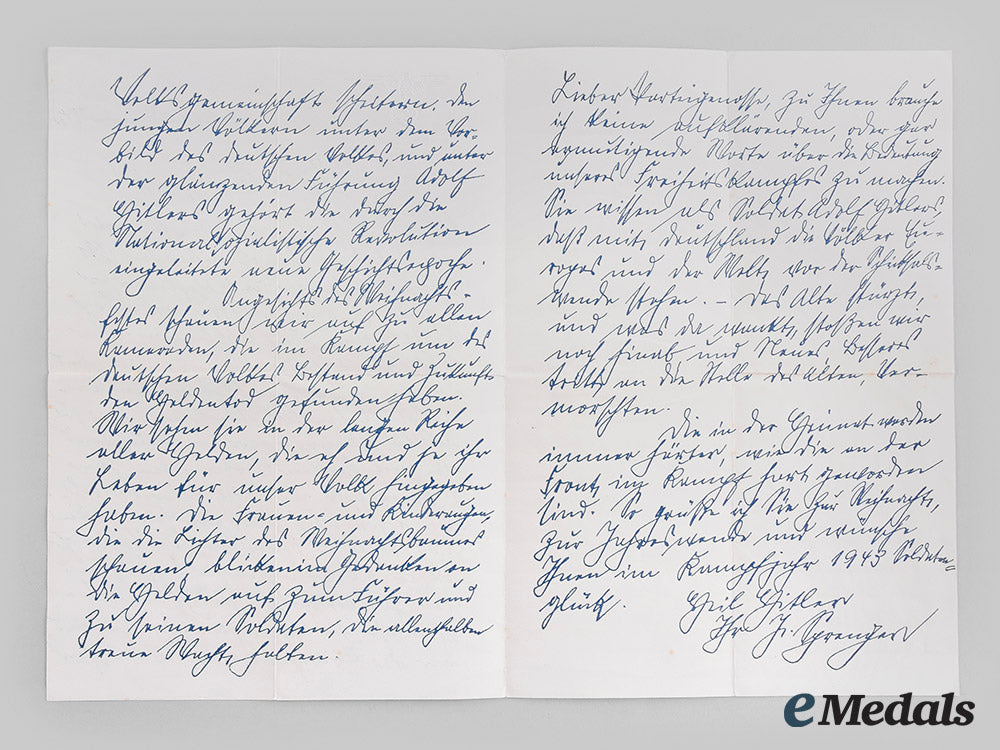 Volksgemeinschaft scheitern. Den
jungen Völkern unter dem Vor-
bild des deutschen Volkes, und unter
der glänzenden Führung Adolf
Hitlers gehört die durch die
Nationalsozialistische Revolution
eingeleitete neue Geschichtsepoche.
Angesichts des Weihnachts-
festes schauen wir auf zu allen
Kameraden, die im Kampf um des
deutschen Volkes Bestand und Zukunft
den Heldentod gefunden haben.
Wir sehn sie in der langen Reihe
aller Helden, die eh und je ihr
Leben für unser Volk hingegeben
haben. Die Frauen- und Kinderaugen,
die die Lichter des Weihnachtsbaumes
schauen, blicken im Gedenken an
die Helden auf zum Führer und
zu seinen Soldaten, die allenthalben
treue Wacht halten.
Lieber Parteigenosse, zu Ihnen brauche
ich keine aufklärenden, oder gar
ermutigende Worte über die Bedeutung
unseres Freiheitskampfes zu machen.
Sie wissen als Soldat Adolf Hitlers,
daß mit Deutschland die Völker Eu-
ropas und der Welt vor der Schicksals-
wende stehen. – Das Alte stürzt,
und was da wankt, stoßen wir
noch hinab und Neues, Besseres
tritt an die Stelle des Alten, Ver-
morschten.
Die in der Heimat werden
immer härter, wie die an der
Front im Kampf hart geworden
sind. So grüße ich Sie zur Weihnacht,
zur Jahreswende und wünsche
Ihnen im Kampfjahr 1943 Soldaten-
glück. Heil Hitler
Ihr J. Sprenger
eMedals